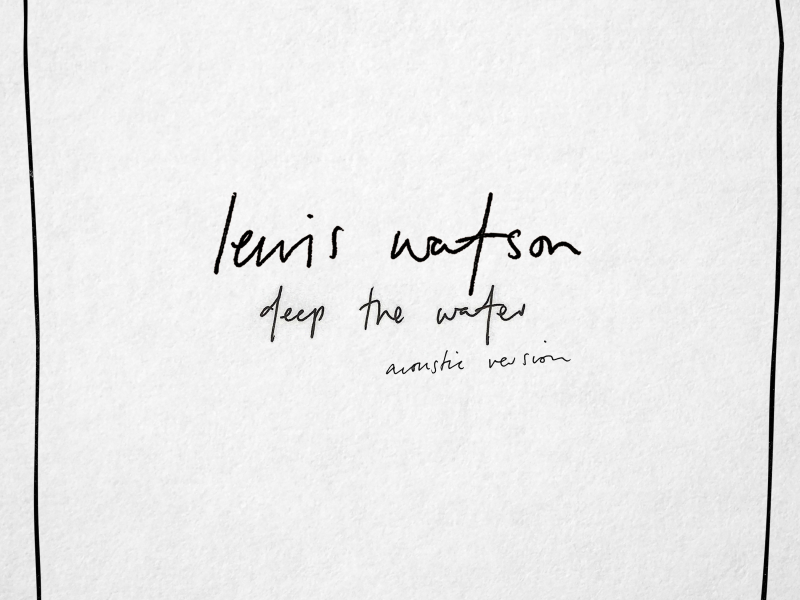 lewis watson
deep the water
acoustic version